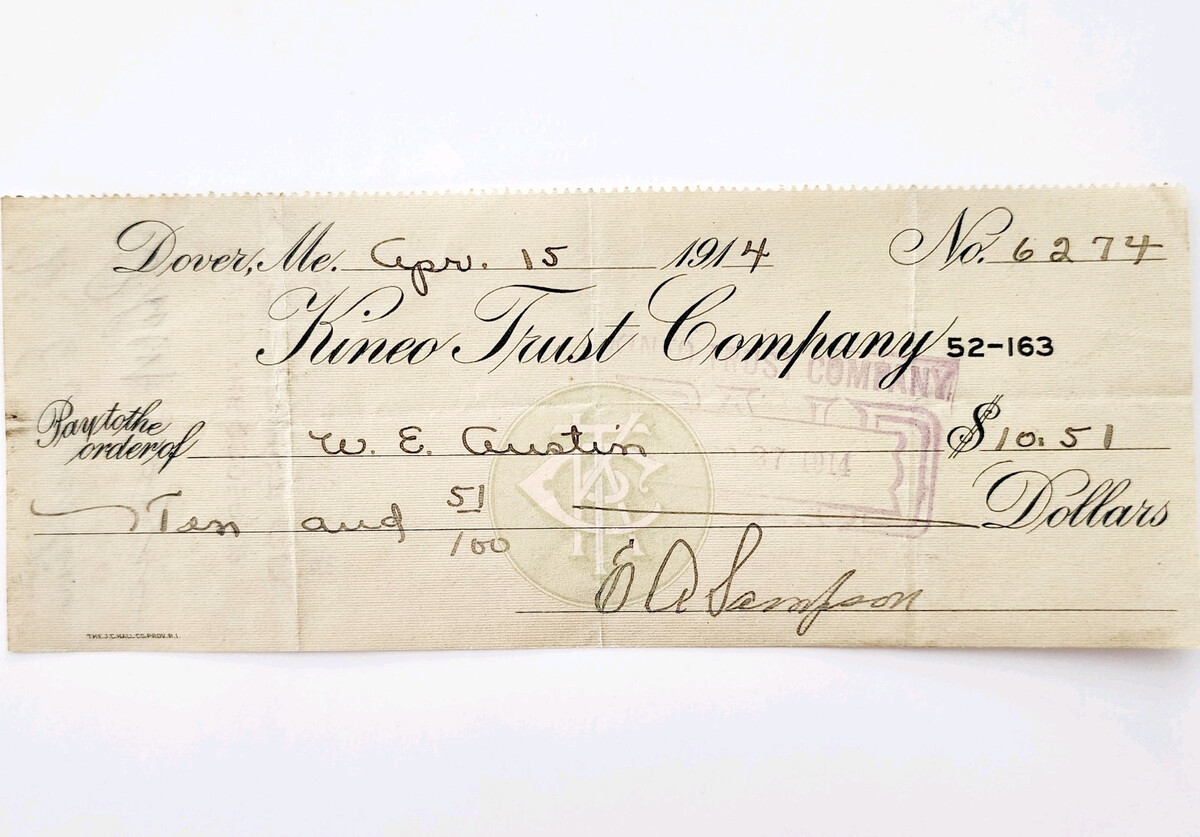 Dover, Me. Apr. 15 1914 No. 6274
Kineo Trust Company 52-163
KINEO TRUST COMPANY
Pay to the
order of W. E. Austin $10.51
27 1914
Ten and 51/100 Dollars
E A Sampson
THE J.C. HALL CO. PROV. R.I.